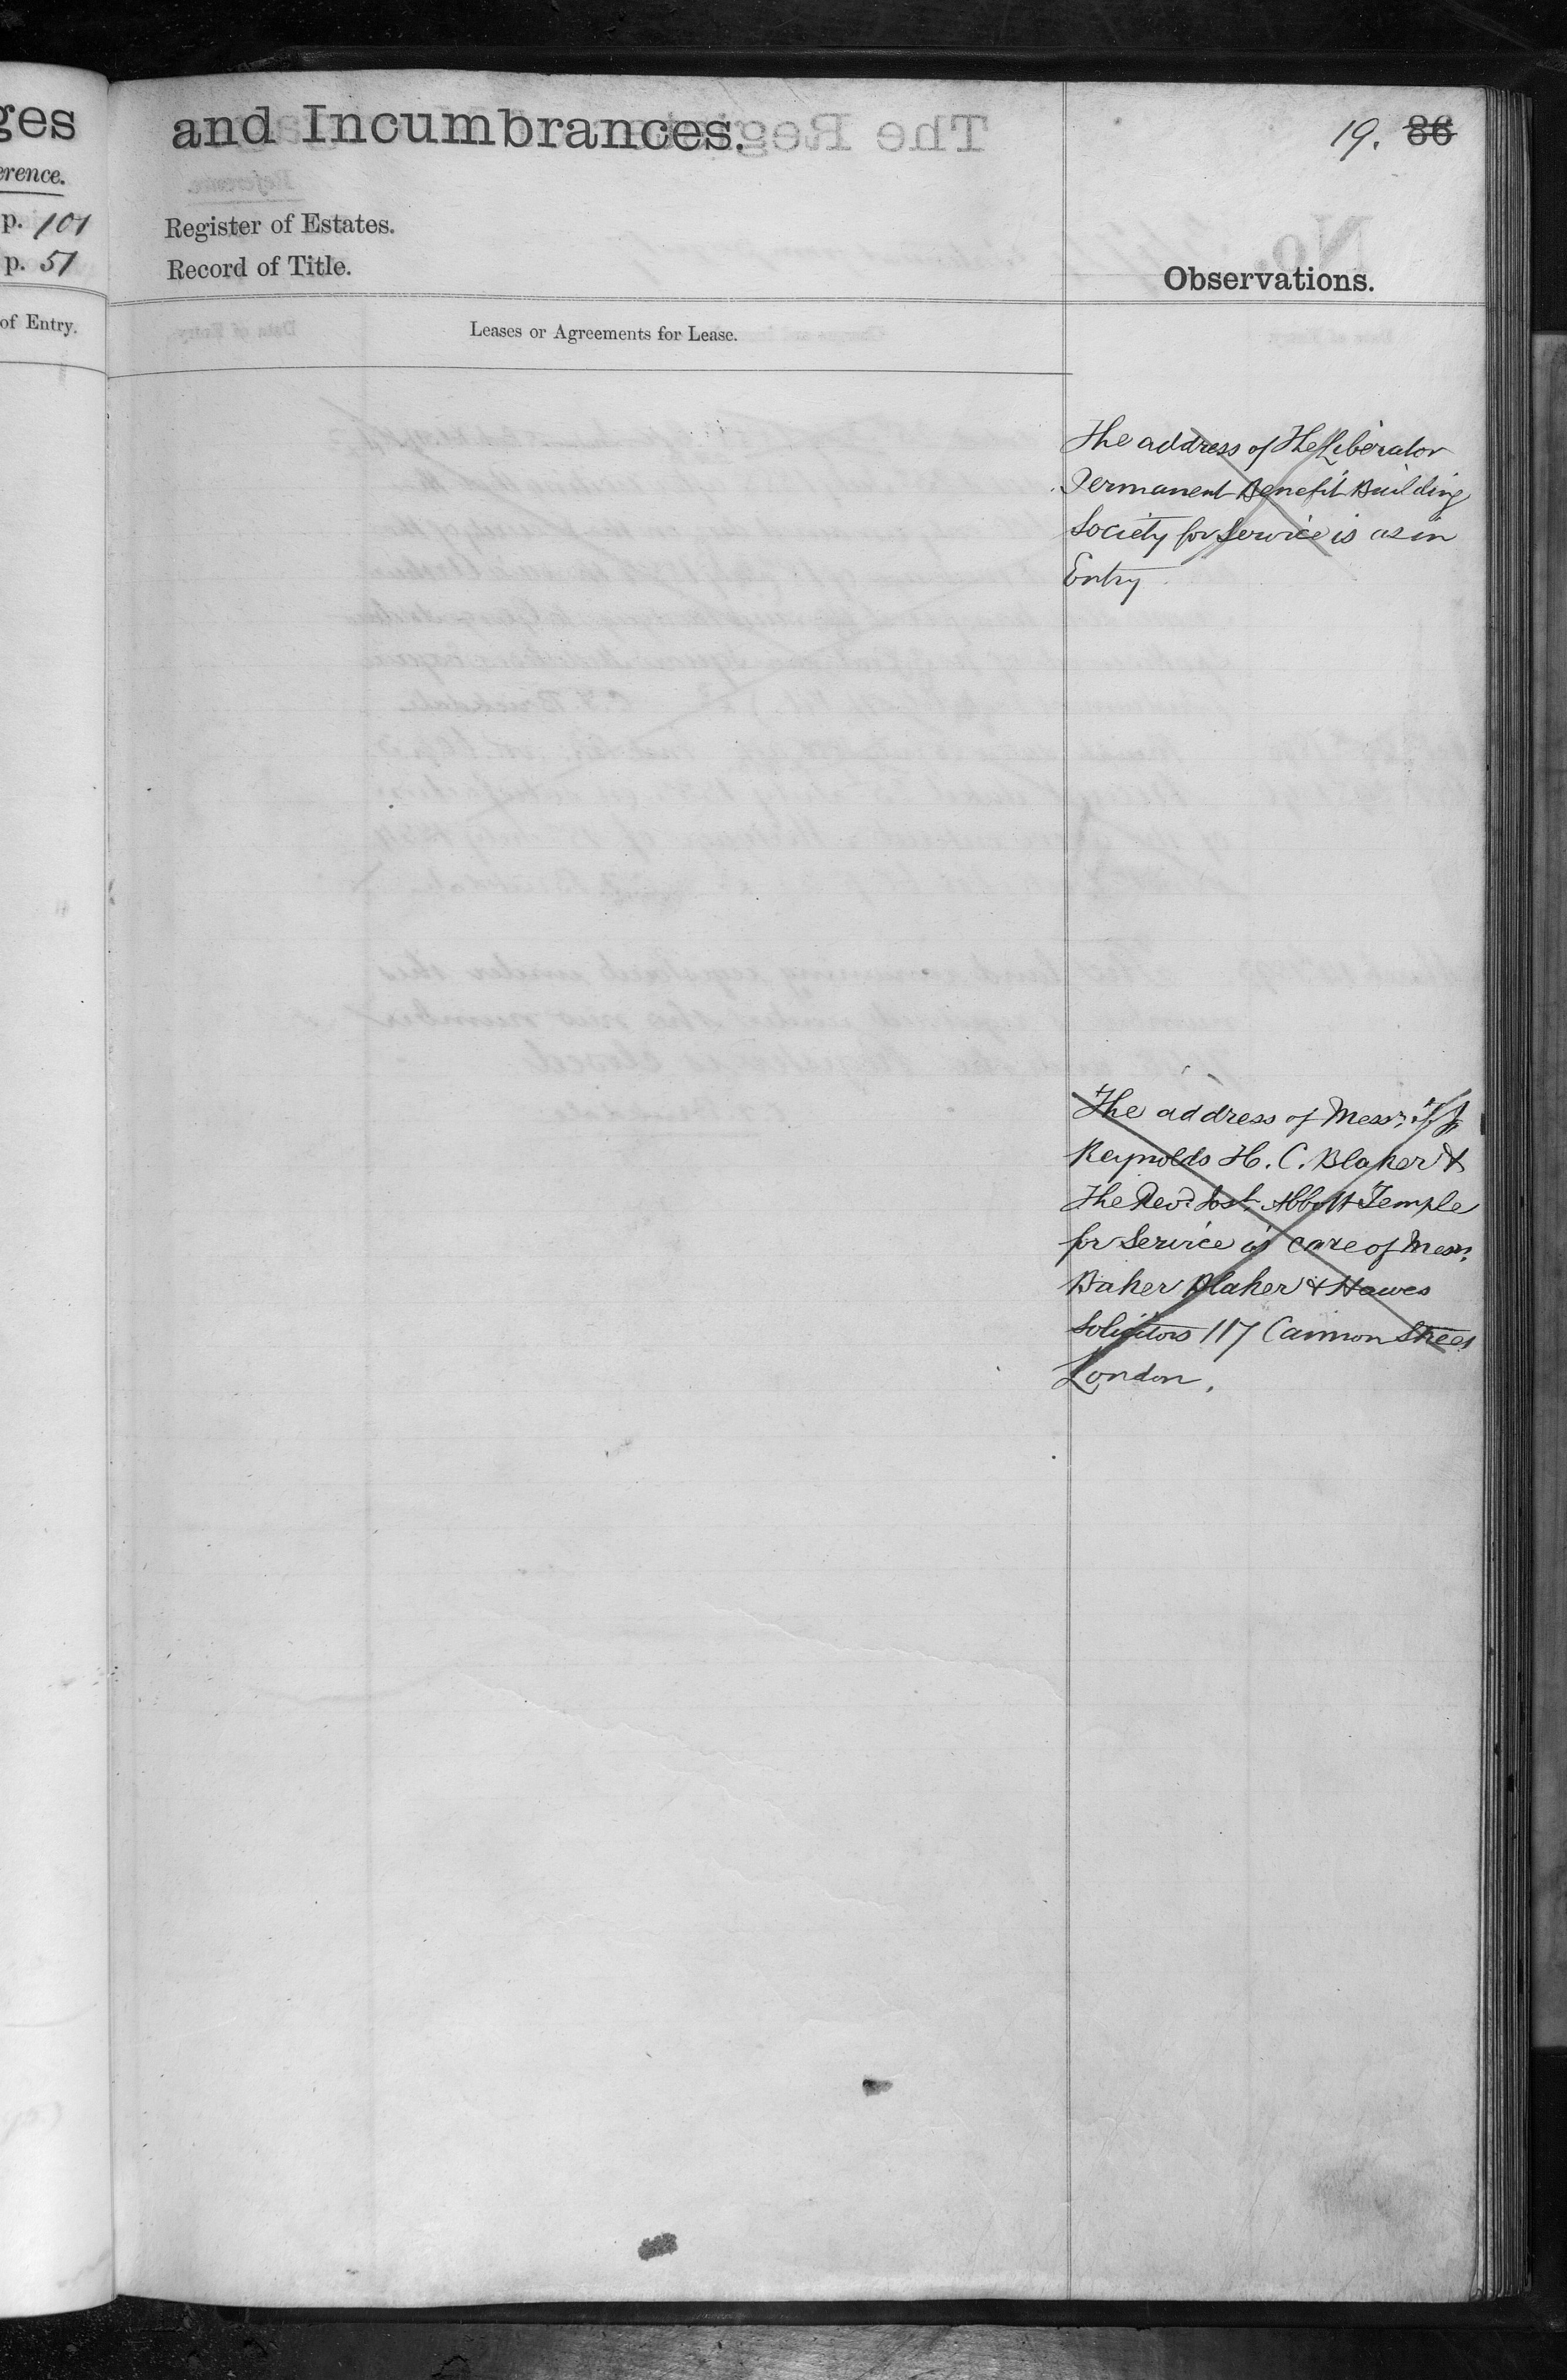 ges
erence.
p. 101
p. 51
of Entry.
and Incumbrances.
19. 86
Register of Estates.
Record of Title.
Observations.
Leases or Agreements for Lease.
The address of The Liberator
Permanent Benefit Building
Society for Service is as in
Entry
The address of Messrs.
Reynolds H. C. Blaker &
The Revd. Abbott Temple
for Service is care of Messrs.
Baker Blaker & Hawes
Solicitors 117 Cannon Street
London.